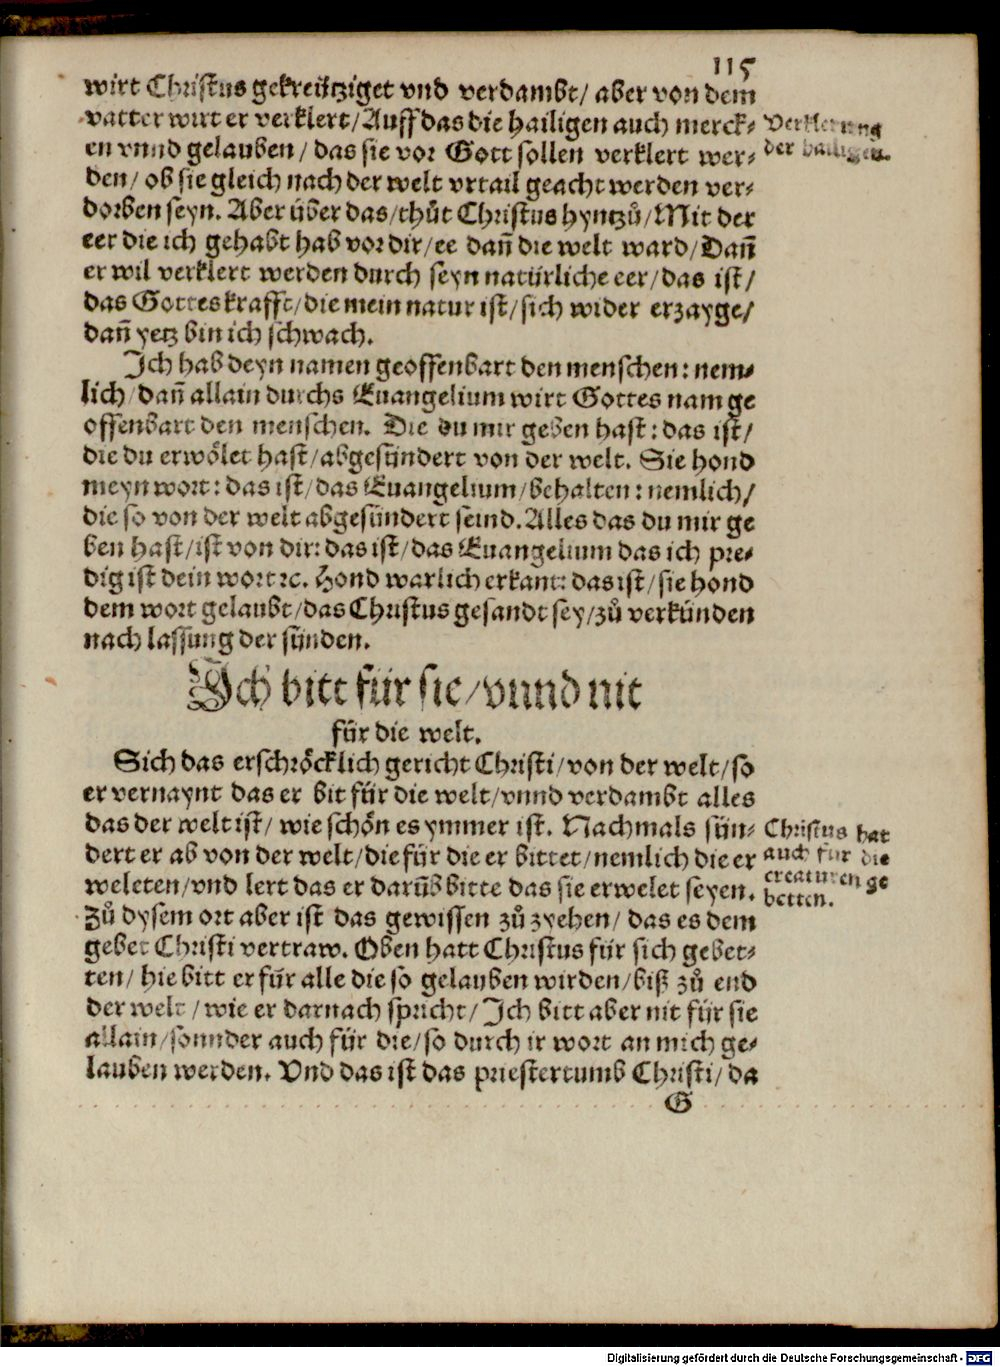 115
wirt Christus gekreütziget vnd verdambt/ aber von dem
vatter wirt er verklert/ Auff das die hailigen auch merck⸗
en vnnd gelauben/ das sie vor Gott sollen verklert wer⸗
den/ ob sie gleich nach der welt vrtail geacht werden ver⸗
dorben seyn. Aber über das/ thůt Christus hyntzů/ Mit der
eer die ich gehabt hab vor dir/ ee dañ die welt ward/ Dañ
er wil verklert werden durch seyn natürliche eer/ das ist/
das Gottes krafft/ die mein natur ist/ sich wider erzayge/
dañ yetz bin ich schwach.
Ich hab deyn namen geoffenbart den menschen: nem⸗
lich/ dañ allain durchs Euangelium wirt Gottes nam ge
offenbart den menschen. Die du mir geben hast: das ist/
die du erwölet hast/ abgesündert von der welt. Sie hond
meyn wort: das ist/ das Euangelium/ behalten: nemlich/
die so von der welt abgesündert seind. Alles das du mir ge
ben hast/ ist von dir: das ist/ das Euangelium das ich pre⸗
dig ist dein wort ꝛc. Hond warlich erkant: das ist/ sie hond
dem wort gelaubt/ das Christus gesandt sey/ zů verkünden
nach lassung der sünden.
Ich bitt für sie/ vnnd nit
für die welt.
Sich das erschröcklich gericht Christi/ von der welt/ so
er vernaynt das er bit für die welt/ vnnd verdambt alles
das der welt ist/ wie schön es ymmer ist. Nachmals sün⸗
dert er ab von der welt/ die für die er bittet/ nemlich die er
weleten/ vnd lert das er darüb bitte das sie erwelet seyen.
Zů dysem ort aber ist das gewissen zů zyehen/ das es dem
gebet Christi vertraw. Oben hatt Christus für sich gebet⸗
ten/ hie bitt er für alle die so gelauben wirden/ biß zů end
der welt/ wie er darnach spricht/ Ich bitt aber nit für sie
allain/ sonnder auch für die/ so durch ir wort an mich ge⸗
lauben werden. Vnd das ist das priestertumb Christi/ da
G
Verklerung
der hailigen.
Christus hat
auch für die
creaturen ge
betten.
Digitalisierung gefördert durch die Deutsche Forschungsgemeinschaft - DFG